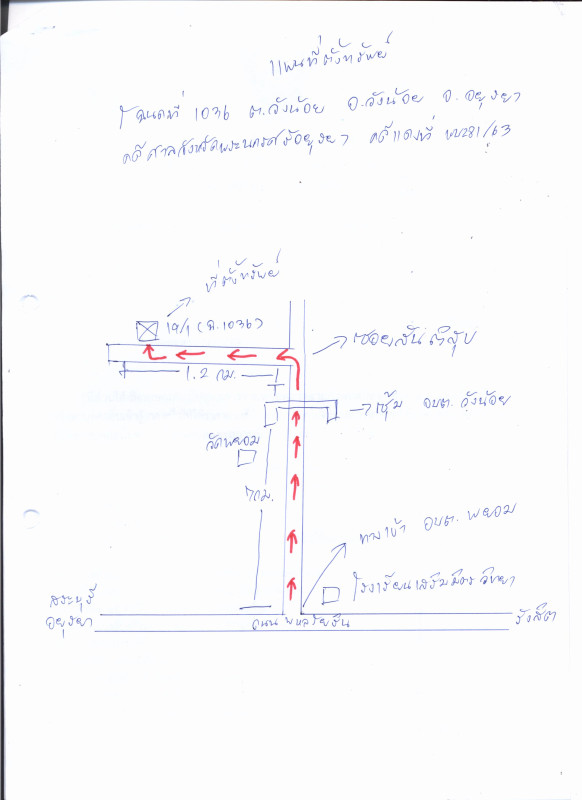 แผนที่ตั้งทรัพย์
โฉนดที่ 1036 ต.วังน้อย อ.วังน้อย จ.อยุธยา
คดีศาลจังหวัดพระนครศรีอยุธยา คดีแดงที่ ผบ281/63
ที่ตั้งทรัพย์
19/1 (ฉ.1036)
ซอยสันติสุข
1.2 กม.
ซุ้ม อบต. วังน้อย
วัดพยอม
7กม.
ทางเข้า อบต. พยอม
โรงเรียนเสริมมิตรวิทยา
สระบุรี
อยุธยา
ถนน พหลโยธิน
รังสิต